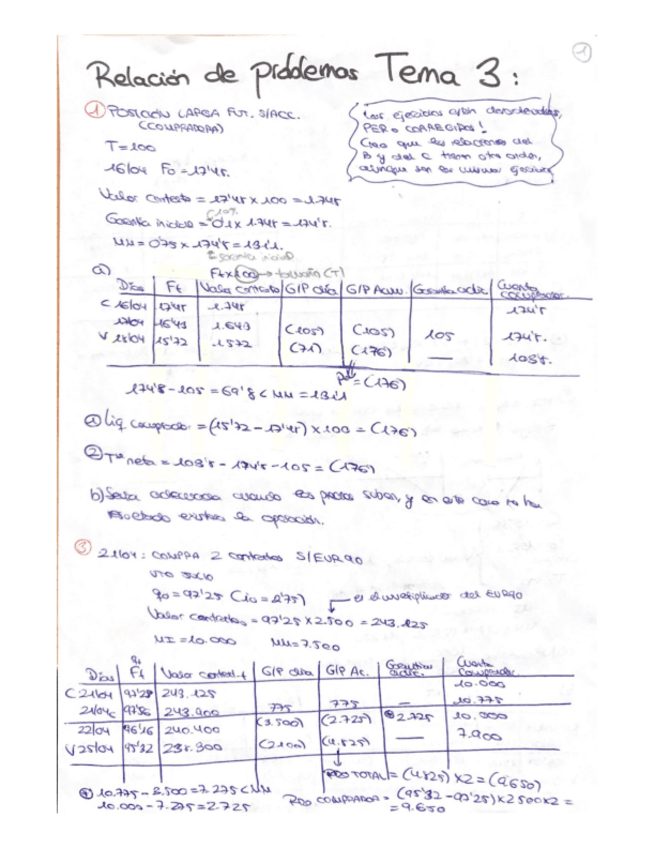 1
Relación de problemas Tema 3:
① POSICIÓN LARGA FUT. S/ACC.
(COMPRADORA)
Los ejercicios están desordenados,
PERO CORREGIDOS!
Creo que las relaciones del
B y del C tienen otro orden,
aunque son los mismos ejercicios
T=100
16/04 F0=17'45.
Valor contrato = 17'45 x 100 = 1.745
(10%
Garantía inicial = 0'1 x 1.745 = 174'5.
MM = 0'75 x 174'5 = 131.
garantía inicial
a)
Ft x 100 → tamaño (T)
Días Ft Valor contrato G/P día G/P Acum. Garantía adic. Cuenta comprador.
C 16/04 17'45 1.745 174'5
17/04 16'43 1.643 (105) (105) 105 174'5.
V 18/04 15'72 1.572 (71) (176) — 103'5.
= (176)
174'8 - 105 = 69'8 < MM = 131
① Liq comprador = (15'72 - 17'45) x 100 = (176)
② neta = 103'5 - 174'5 - 105 = (176)
b) Sería adecuada cuando los precios suban, y en este caso no ha
resultado exitosa la operación.
③ 21/04: COMPRA 2 contratos S/EUR90
VTO JULIO
q0 = 97'25 (i0 = 2'75)
el multiplicador del EUR90
Valor contratos = 97'25 x 2.500 = 243.125
MI = 10.000 MM = 7.500
Días Ft Valor contrat. G/P día G/P Ac. Garantías adic. Cuenta comprador.
C 21/04 97'25 243.125 10.000
21/04c 97'56 243.900 775 775 — 10.775
22/04 96'16 240.400 (3.500) (2.725) 2.725 10.000
V 25/04 95'32 238.300 (2.100) (4.825) — 7.900
RDO TOTAL = (4.825) x 2 = (9.650)
10.775 - 3.500 = 7.275 < MM
10.000 - 7.275 = 2.725
RDO COMPRADOR = (95'32 - 97'25) x 2500 x 2 =
= 9.650